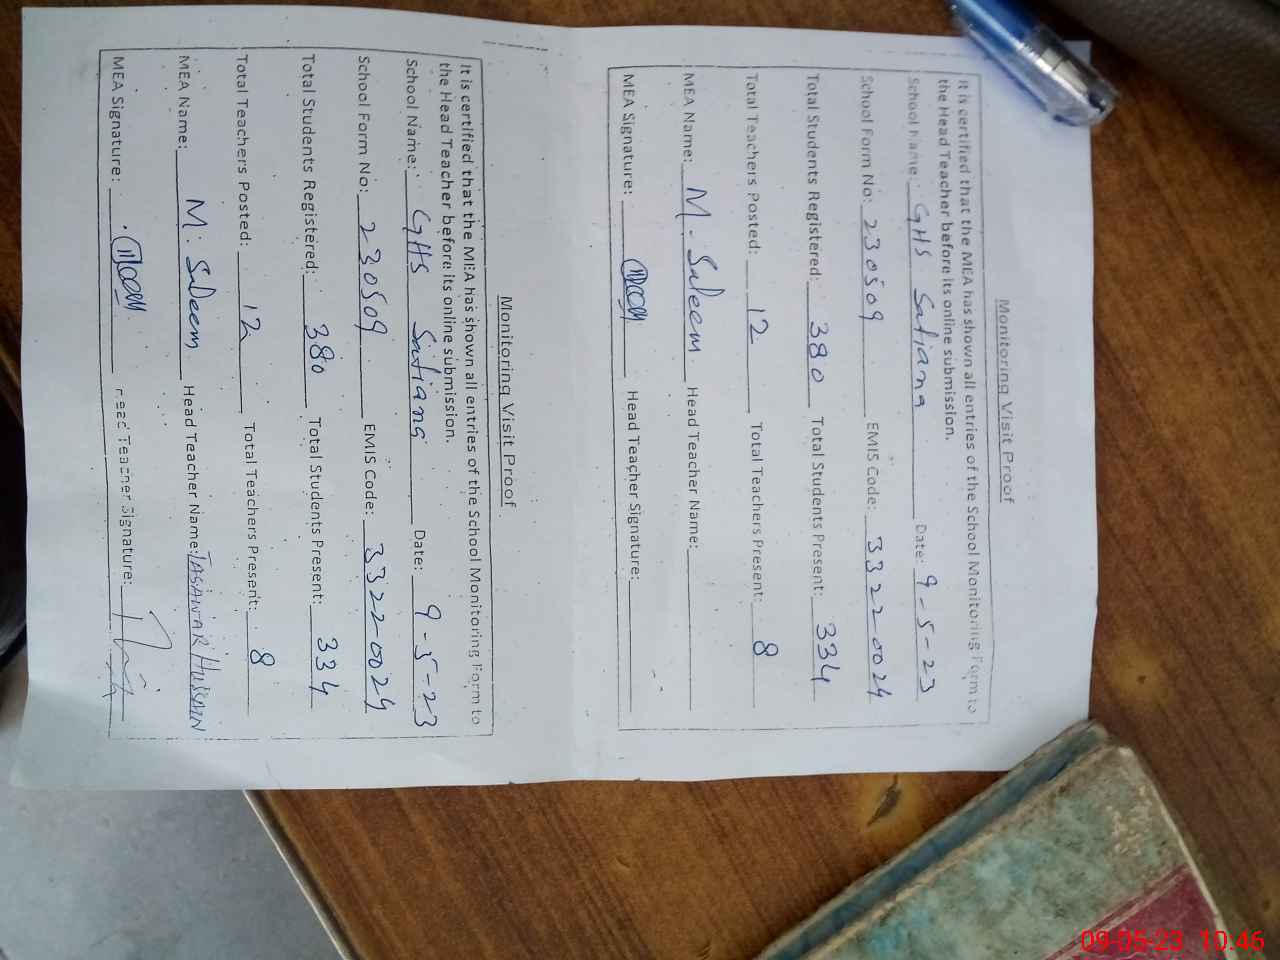 Monitoring Visit Proof
It is certified that the MEA has shown all entries of the School Monitoring Form to
the Head Teacher before its online submission.
School Name: GHS Satiana Date: 9-5-23
School Form No: 230509 EMIS Code: 33220024
Total Students Registered: 380 Total Students Present: 334
Total Teachers Posted: 12 Total Teachers Present: 8
MEA Name: M. Saleem Head Teacher Name:
MEA Signature: Head Teacher Signature:
Monitoring Visit Proof
It is certified that the MEA has shown all entries of the School Monitoring Form to
the Head Teacher before its online submission.
School Name: GHS Satiana Date: 9-5-23
School Form No: 230509 EMIS Code: 33220024
Total Students Registered: 380 Total Students Present: 334
Total Teachers Posted: 12 Total Teachers Present: 8
MEA Name: M. Saleem Head Teacher Name: TASAWAR HUSSAIN
MEA Signature: Head Teacher Signature:
09-05-23 10:46